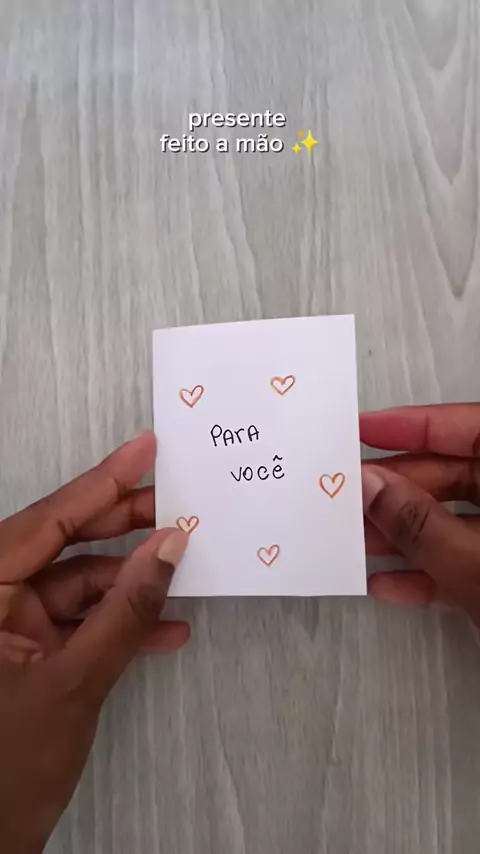 presente
feito a mão ✨
PARA
VOCÊ